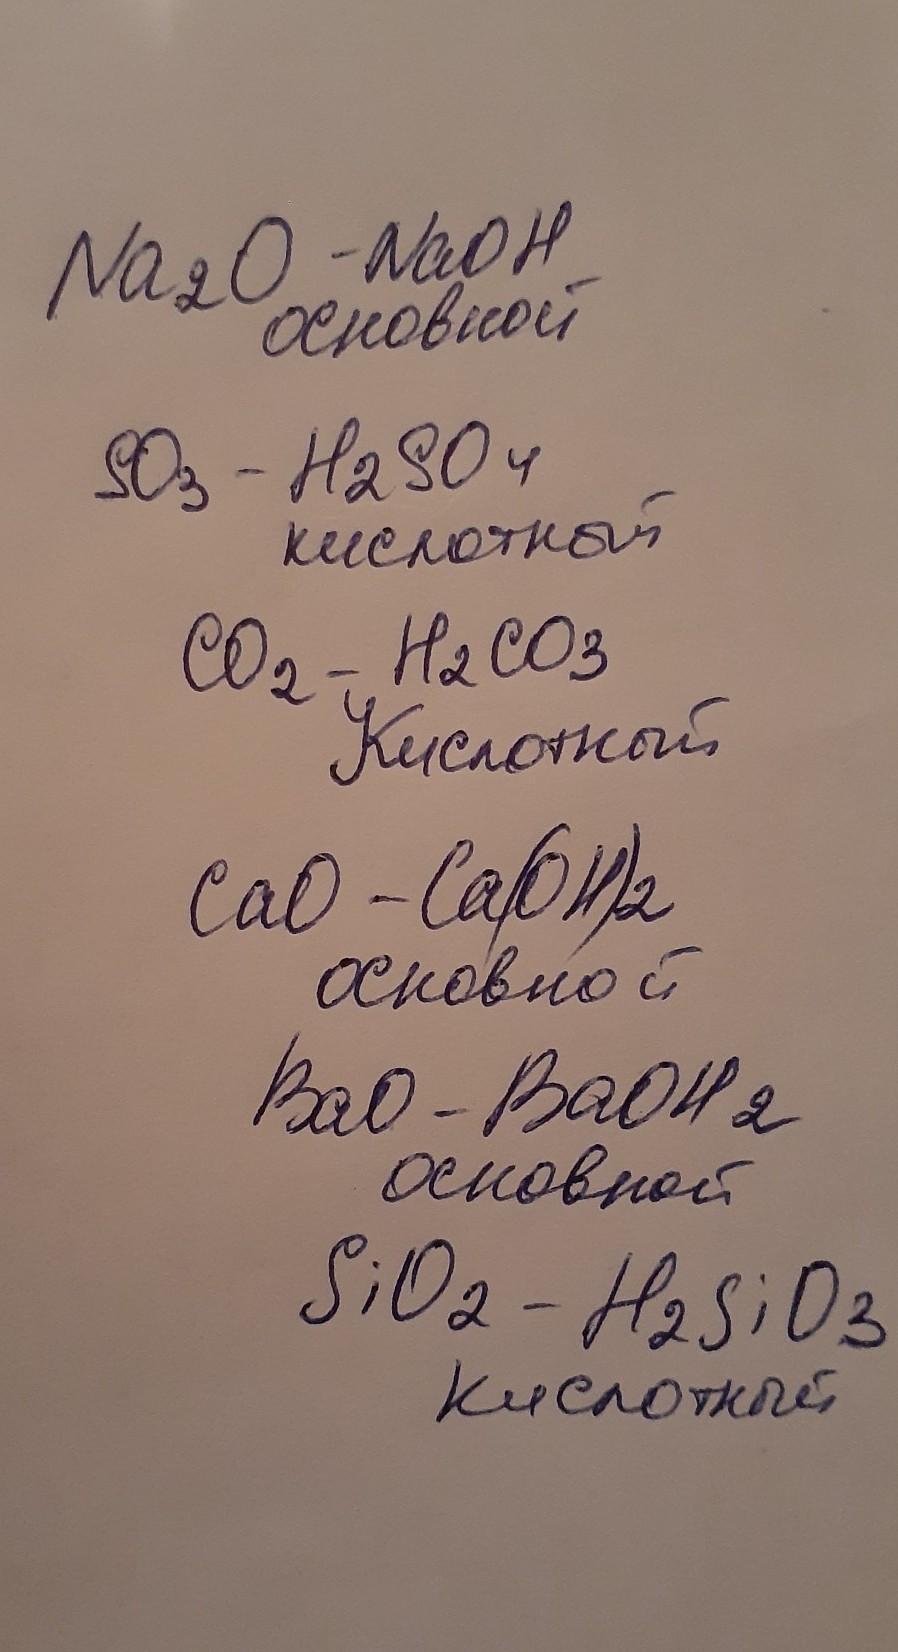 Na2O - NaOH
основной
SO3 - H2SO4
кислотный
CO2 - H2CO3
Кислотный
CaO - Ca(OH)2
основной
BaO - BaOH2
основной
SiO2 - H2SiO3
кислотный